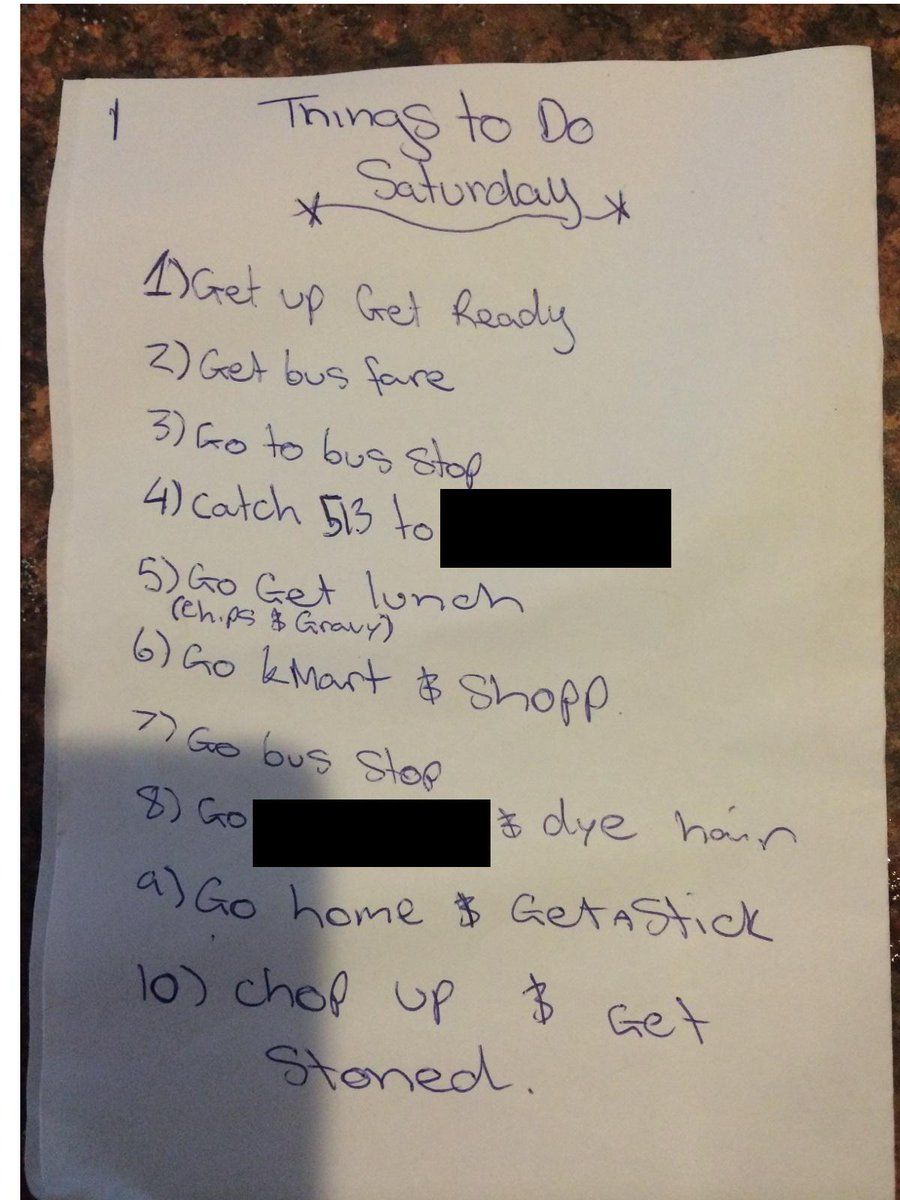 1
Things to Do
Saturday
1) Get up Get Ready
2) Get bus fare
3) Go to bus stop
4) Catch 513 to
5) Go Get lunch
(Chips & Gravy)
6) Go kMart & Shopp
7) Go bus Stop
8) Go & dye hair
9) Go home & Get A Stick
10) Chop up & Get
Stoned.